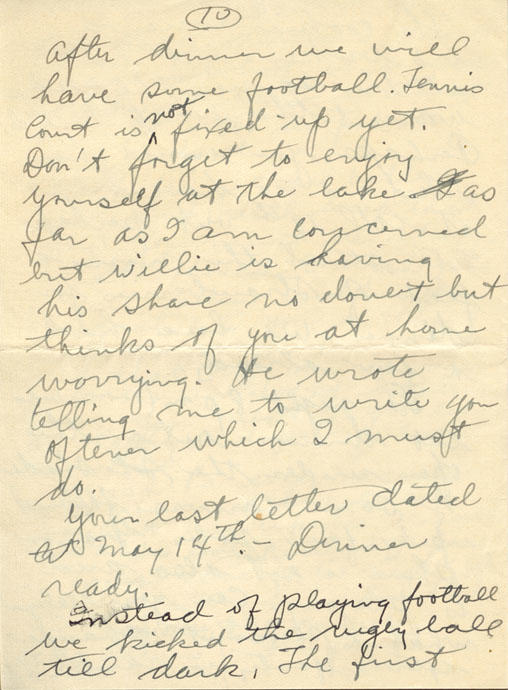 10
After dinner we will
have some football. Tennis
Court is not fixed-up yet.
Don't forget to enjoy
yourself at the lake as
far as I am concerned
but Willie is having
his share no doubt but
thinks of you at home
worrying. He wrote
telling me to write you
oftener which I must
do.
Your last letter dated
May 14th. - Dinner
ready.
Instead of playing football
we kicked the rugby ball
till dark. The first